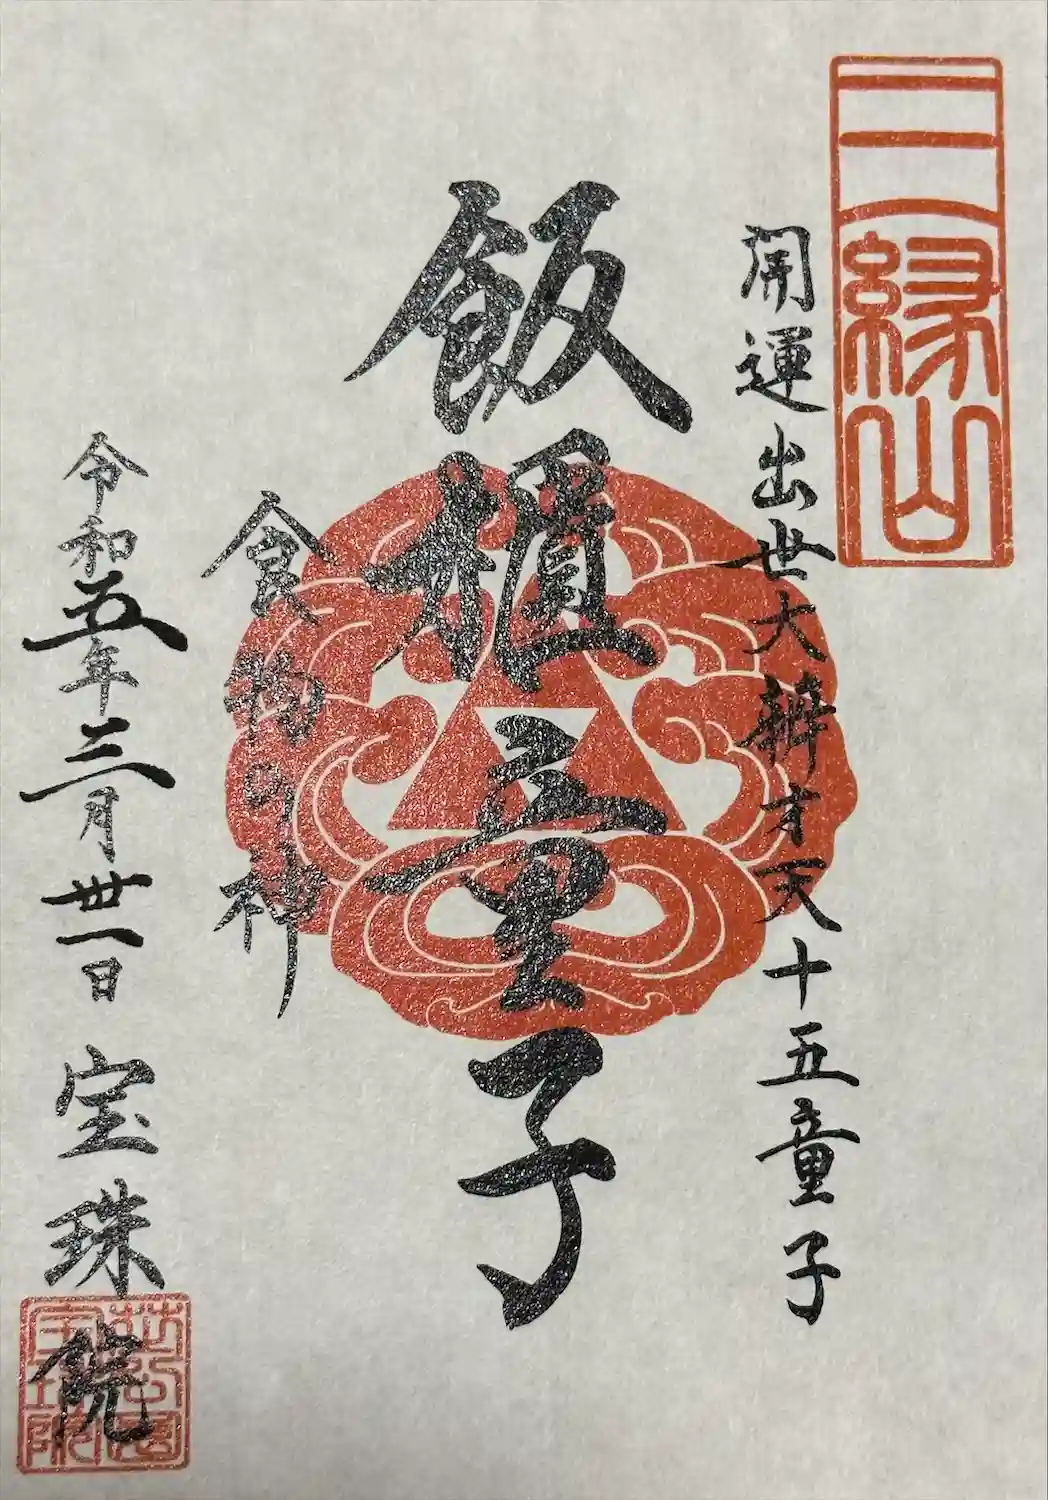 三縁山
開運出世大辨才天十五童子
飯櫃童子
食物の神
令和五年三月丗一日 宝珠院
芝公園
宝珠院